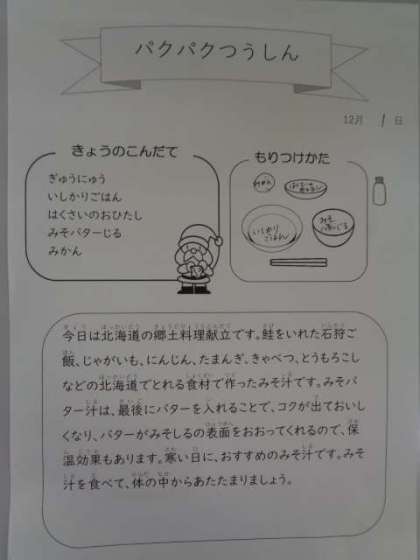 パクパクつうしん
12月 1日
きょうのこんだて
ぎゅうにゅう
いしかりごはん
はくさいのおひたし
みそバターじる
みかん
もりつけかた
みかん
いしかりごはん
みそ
今日は北海道の郷土料理献立です。鮭をいれた石狩ご
飯、じゃがいも、にんじん、たまんぎ、きゃべつ、とうもろこし
などの北海道でとれる食材で作ったみそ汁です。みそバ
ター汁は、最後にバターを入れることで、コクが出ておいし
くなり、バターがみそしるの表面をおおってくれるので、保
温効果もあります。寒い日に、おすすめのみそ汁です。みそ
汁を食べて、体の中からあたたまりましょう。